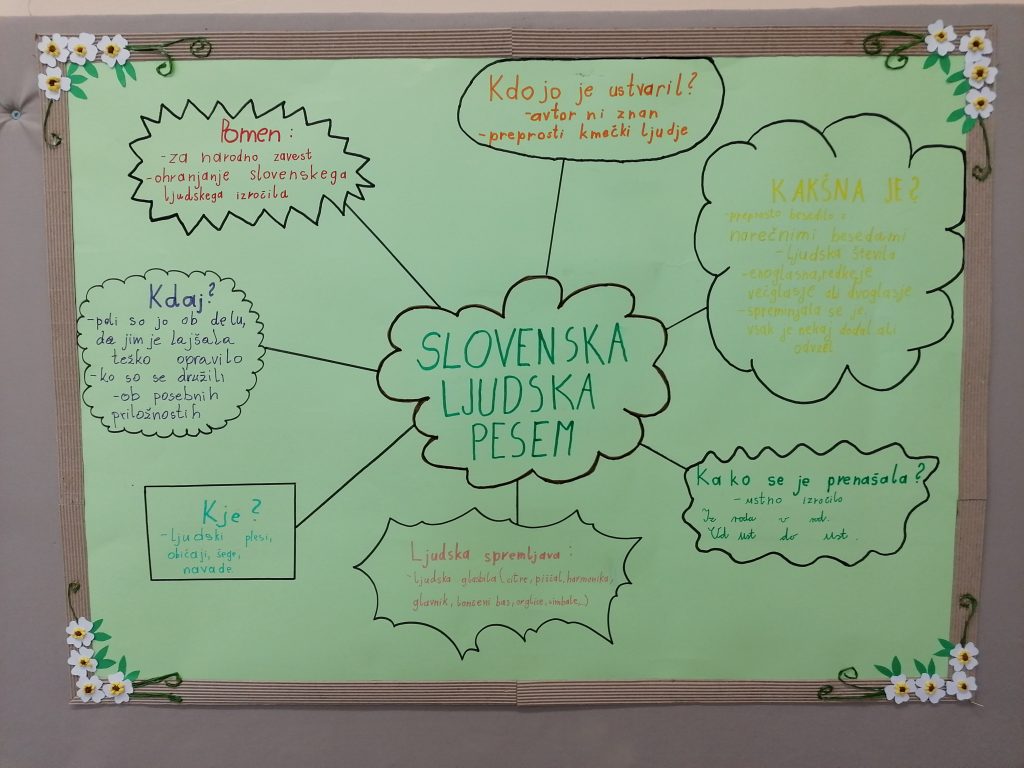 Pomen:
-za narodno zavest
-ohranjanje slovenskega
ljudskega izročila
Kdo jo je ustvaril?
-avtor ni znan
-preprosti kmečki ljudje
KAKŠNA JE?
-preprosto besedilo z
narečnimi besedami
-ljudska števila
-enoglasna, redkeje
večglasje ob dvoglasje
-spreminjala se je,
vsak je nekaj dodal ali
odvzel
Kdaj?
-peli so jo ob delu,
da jim je lajšala
težko opravilo
-ko so se družili
-ob posebnih
priložnostih
SLOVENSKA
LJUDSKA
PESEM
Kako se je prenašala?
-ustno izročilo
Iz roda v rod.
Od ust do ust.
Kje?
-ljudski plesi,
običaji, šege,
navade.
Ljudska spremljava:
-ljudska glasbila (citre, piščal, harmonika,
glavnik, lončeni bas, orglice, cimbale,..)